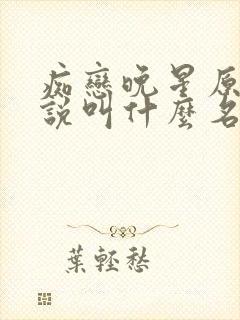 痴戀晚星原
說叫什麼名
葉輕愁